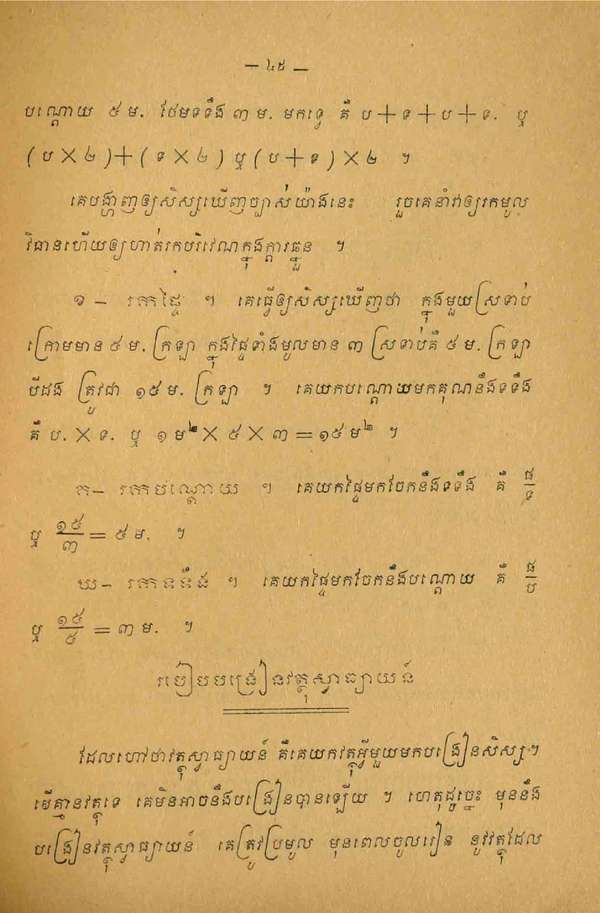 — ៤៥ —
បណ្ដោយ ៥ ម. ថែមទទឹង ៣ ម. មកទ្វេ គឺ ប + ទ + ប + ទ. ឬ
( ប × ២ ) + ( ទ × ២ ) ឬ ( ប + ទ ) × ២ ។
គេបង្ហាញឲ្យសិស្សឃើញច្បាស់យ៉ាងនេះ រួចគេនាំវាឲ្យរកមូល
វិធានហើយឲ្យហាត់រកបរិវេណក្នុងក្ដារឆ្នួន ។
១ – រកផ្ទៃ ។ គេធ្វើឲ្យសិស្សឃើញថា ក្នុងមួយស្រទាប់
ក្រោមមាន ៥ ម. ក្រឡា ក្នុងផ្ទៃទាំងមូលមាន ៣ ស្រទាប់គឺ ៥ ម. ក្រឡា
បីដង ត្រូវជា ១៥ ម. ក្រឡា ។ គេយកបណ្ដោយមកគុណនឹងទទឹង
គឺ ប. × ទ. ឬ ១ ម² × ៥ × ៣ = ១៥ ម² ។
ក – រកបណ្ដោយ ។ គេយកផ្ទៃមកចែកនឹងទទឹង គឺ ផ/ទ
ឬ ១៥/៣ = ៥ ម. ។
ឃ – រកទទឹង ។ គេយកផ្ទៃមកចែកនឹងបណ្ដោយ គឺ ផ/ប
ឬ ១៥/៥ = ៣ ម. ។
របៀបបង្រៀនវត្ថុស្វាធ្យាយន៍
ដែលហៅថាវត្ថុស្វាធ្យាយន៍ គឺគេយកវត្ថុអ្វីមួយមកបង្រៀនសិស្ស។
មើគ្មានវត្ថុទេ គេមិនអាចនឹងបង្រៀនបានឡើយ ។ ហេតុដូច្នេះ មុននឹង
បង្រៀនវត្ថុស្វាធ្យាយន៍ គេត្រូវប្រមូល មុនពេលចូលរៀន នូវវត្ថុដែល